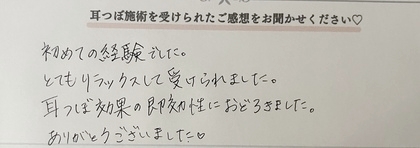 耳つぼ施術を受けられたご感想をお聞かせください♡
初めての経験でした。
とてもリラックスして受けられました。
耳つぼ効果の即効性におどろきました。
ありがとうございました♡